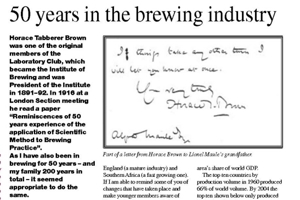 50 years in the brewing industry
Horace Tabberer Brown
was one of the original
members of the
Laboratory Club, which
became the Institute of
Brewing and was
President of the Institute
in 1891–92. In 1916 at a
London Section meeting
he read a paper
“Reminiscences of 50
years experience of the
application of Scientific
Method to Brewing
Practice”.
As I have also been in
brewing for 50 years – and
my family 200 years in
total – it seemed
appropriate to do the
same.
If things take any other turn I
will let you know at once.
Yours very truly
Horace T. Brown
Alfred Maule Esq
Part of a letter from Horace Brown to Lionel Maule's grandfather.
England (a mature industry) and
Southern Africa (a fast growing one).
If I am able to remind some of you of
changes that have taken place and
make younger members aware of
area's share of world GDP.
The top ten countries by
production volume in 1960 produced
66% of world volume. By 2004 the
top ten shown below only produced